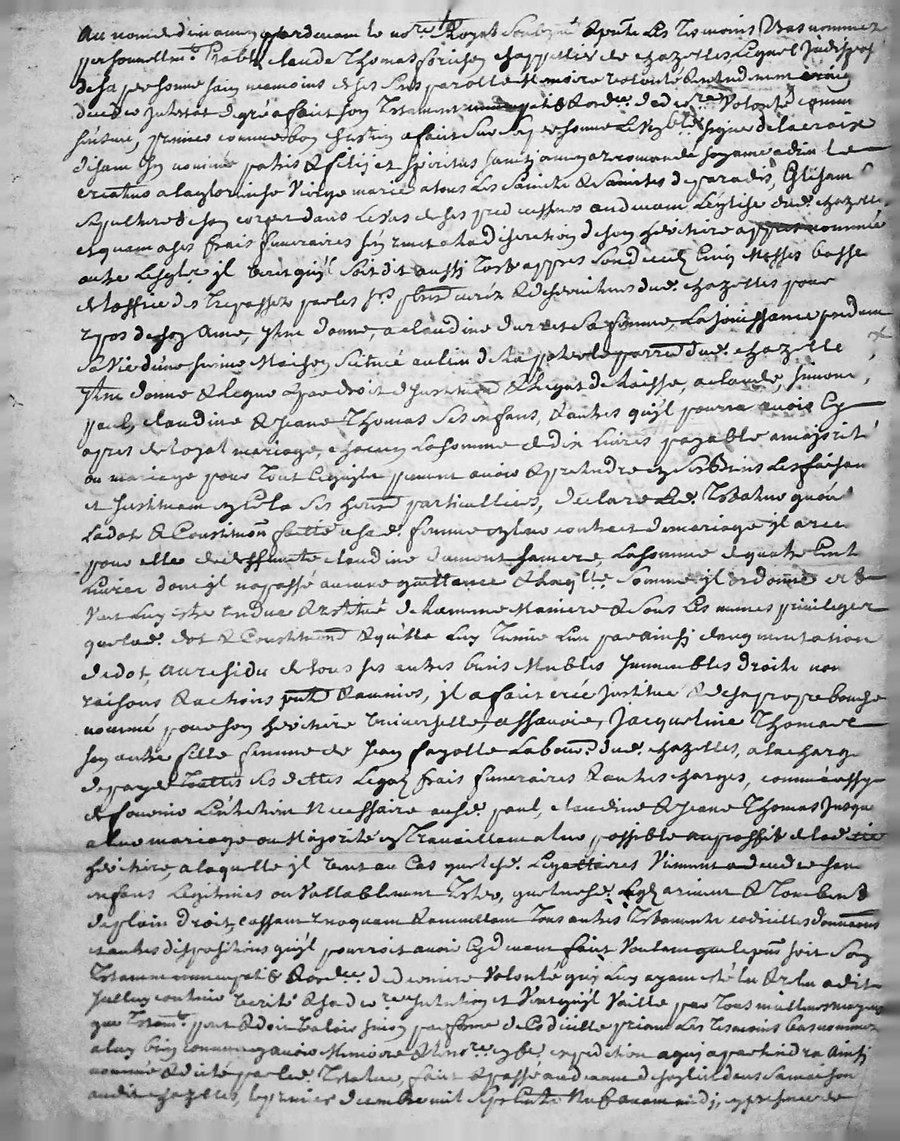 Au nom de dieu amen pardevant le no.re Royal soubz.né & pnt Les Tesmoins bas nommez
personnellem.t Estably claude Thomas forichon chappellier de chazelles Lequel Indisposé
de sa personne sain neamoins de ses sens parolle memoire volonté & entendement
de gré a fait son Testament & ord.re de d.re Volonté comme
s'ensuit, premier comme bon chrestien a fait sur sa personne le Venble signe de la croix
disant In nomine patris & filij et spiritus sancti amen a recommandé son ame a dieu le
createur a la glorieuse Vierge marie a tous Les Saincts & Saintes de paradis, Elisant
Sepulture de son corps dans Le de ses predecesseurs au devant L'eglise dud. chazelles
et quant a ses frais funeraires s'en remet a la discretion de son heritiere
outre Lesquels il Veut qu'il soit dit aussi Tost appres son decedz Cinq Messes basses
& l'office des Trepassez par les s.rs curéz & dud. chazelles pour
repos de son Ame, Item donne, a claudine sa femme, La Jouissance pendant
sa Vie d'une sienne Maison, Scituée au lieu de la dud. chazelle
Item donne & legue par droit d'Institution & legat de laisse, a claude, simone,
paul, claudine & Jeane Thomas ses enfans, & autres qu'il pourra avoir Cy
apres de loyal mariage, a chacun La somme de dix Livres payable a majorité
ou mariage pour Tout ce qu'ils peuvent avoir & pretendre en ses biens Les faisant
et Instituant en cela ses heritiers particulliers, declare Led. Testateur qu'outre
La dot & Constitution faitte a sad. femme en leur contract de mariage il a receu
pour elle de deffuncte claudine dumont sa mere, La somme de quatre Cent
Livres dont il n'a passé aucune quittance & laq.lle somme il ordonne et
Veut Luy estre rendue & restitué de la mesme Maniere & sous Les mesmes privileges
que lad. dot & Constitution & qu'elle Luy Tienne Lieu par ainsi d'augmentation
de dot, au residu de tous ses autres biens Meubles Immeubles droits noms
raisons & actions pnts & avenirs, il a fait creé Institué & de sa propre bouche
nommé pour son heritiere Universelle, assavoir, Jacqueline Thomas
son autre fille femme de Jean fayolle Labour.r dud. chazelles, a la charge
de payer Touttes ses dettes Legats frais funeraires & autres charges, comme aussy
de fournir L'entretien Necessaire ausd. paul, claudine & Jeane Thomas Jusque
a leur mariage ou Majorité en Travaillant a leur possible au proffit de lad.
heritiere, a laquelle il Veut au Cas que lesd. Legattaires Viennent a deceder sans
enfans Legitimes ou Vallablement Tester, que leursd. Legats arrivent & Tombent
de plain droit, cassant revoquant & annullant Tous autres Testaments codicilles donnations
et autres dispositions qu'il pourroit avoir Cy devant fait Voulant que le pnt soit son
Testament nuncupatif & ord.ce de derniere Volonté qui Luy ayant été lu & relu a dit
Icelluy contenir Verité & sa d.re Intention et Veut qu'il Vaille par Tous meilleurs moyens
que Testam.t peut & doit Valoir sinon par forme de Codicille priant Les Tesmoins bas nommez
a luy bien connus en avoir Memoire & Led. no.re expedition a qui apartiendra Ainsi
nommé & dicté par led. Testateur, fait & passé au devant dans sa maison
audit chazelles, le premier decembre mil Sept Cents Neuf avant midi, en presence de